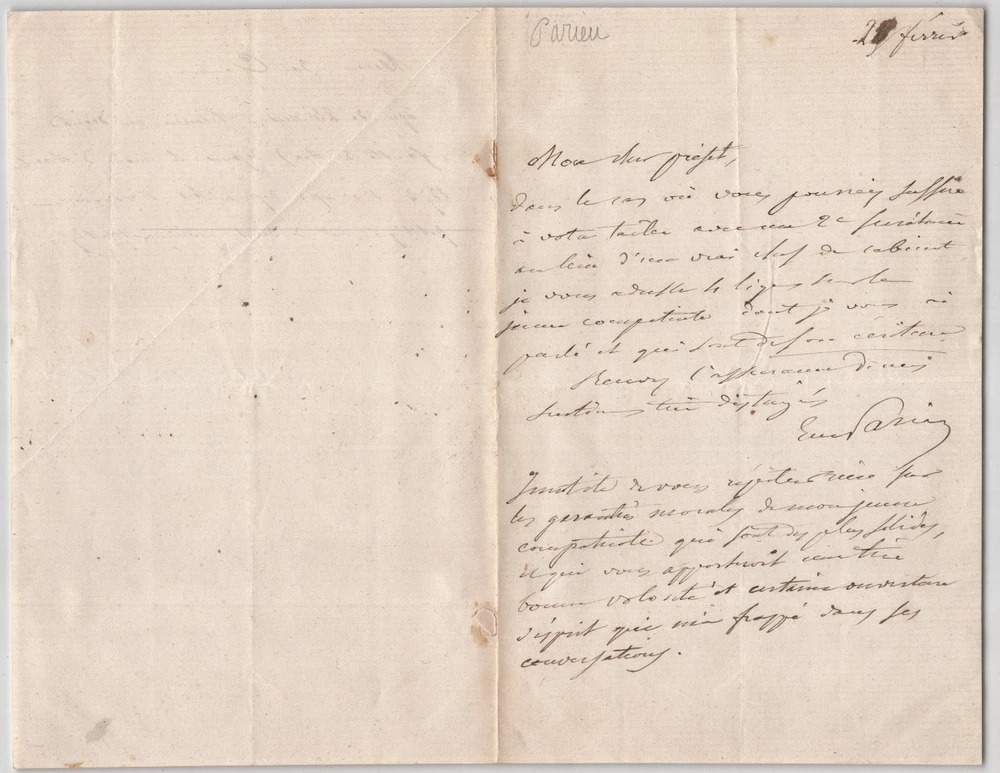 Parieu
février
Mon cher préfet,
Dans le cas où vous pourriez suffire
à votre tâche avec un 2e secrétaire
au lieu d'un vrai chef de cabinet
je vous adresse 4 lignes sur le
jeune compatriote dont je vous ai
parlé et qui sont de son écriture.
Recevez l'assurance de mes
sentimens très distingués
Parieu
Inutile de vous répéter rien sur
les garanties morales de mon jeune
compatriote qui sont des plus solides,
et qui vous apporteroit une très
bonne volonté et certaine ouverture
d'esprit qui m'a frappé dans ses
conversations.